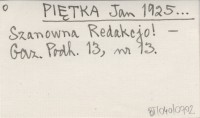 PIĘTKA Jan 1925...
Szanowna Redakcjo! –
Gaz. Podh. 13, nr 13.